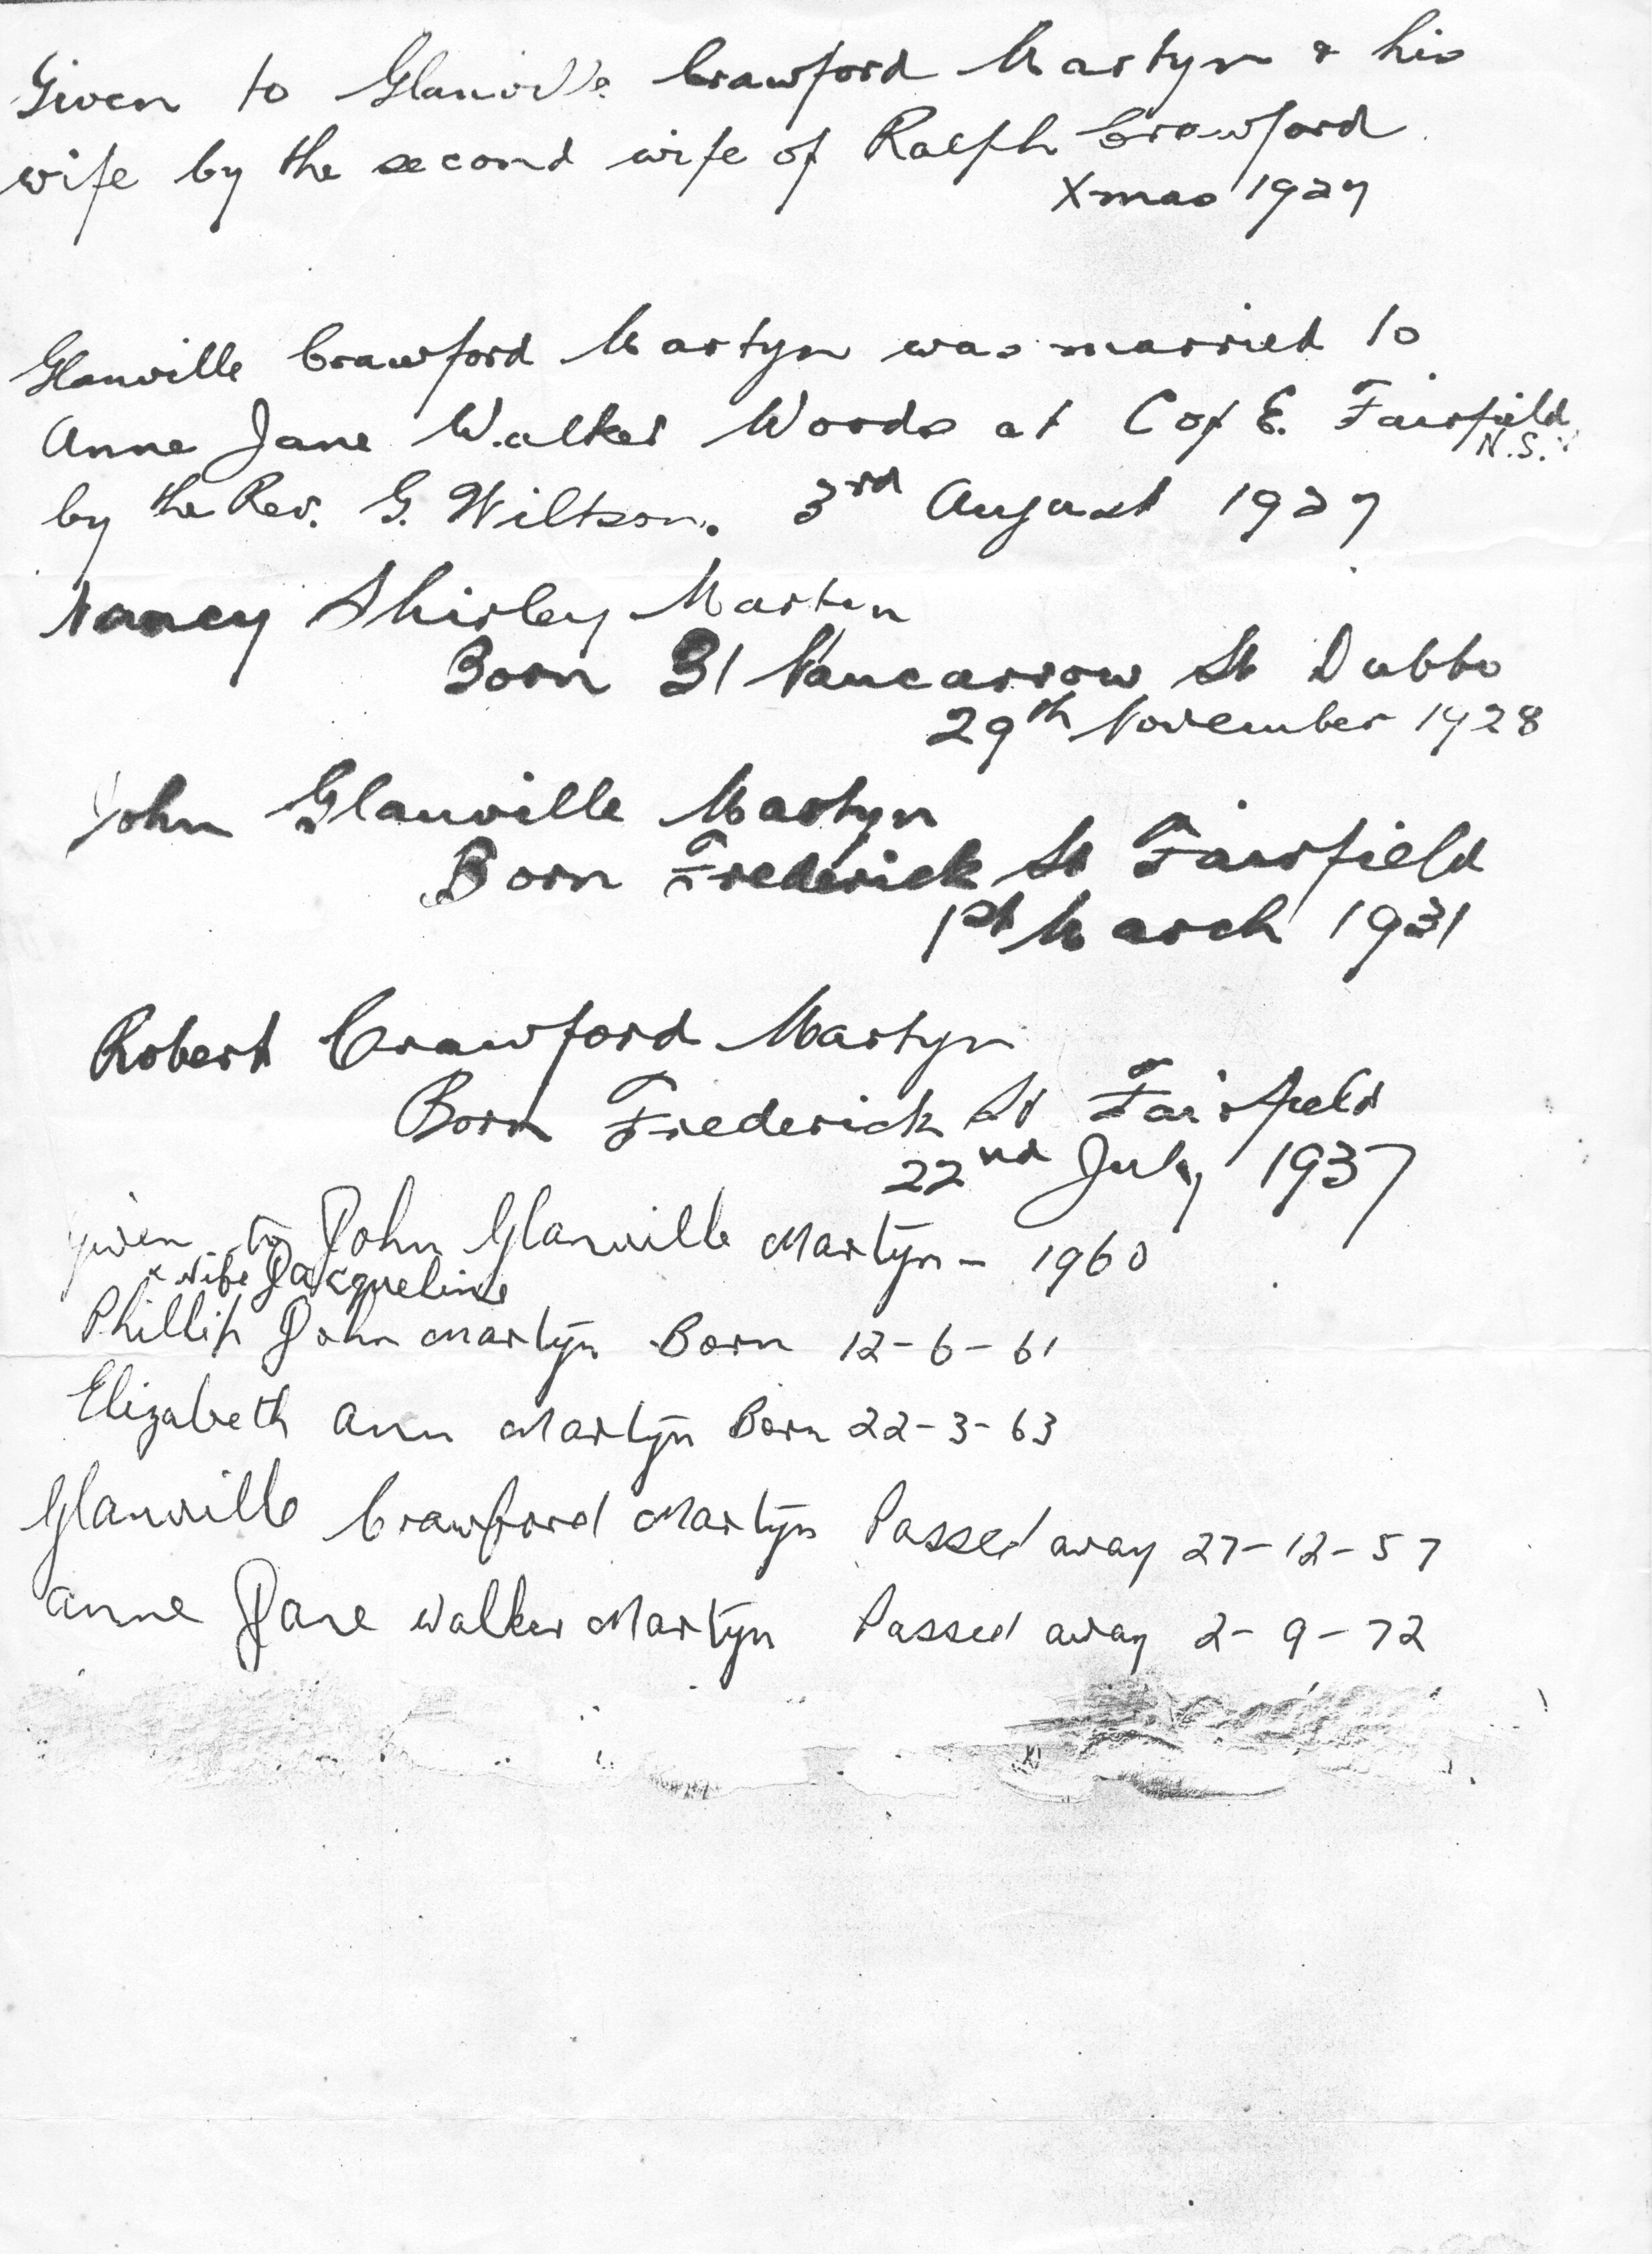 Given to Glanville Crawford Martyn & his
wife by the second wife of Ralph Crawford
Xmas 1927
Glanville Crawford Martyn was married to
Anne Jane Walker Woods at C of E. Fairfield
N.S.
by the Rev. G. Wiltson. 3rd August 1927
Nancy Shirley Martyn
Born 31 Nancarrow St Dubbo
29th November 1928
John Glanville Martyn
Born Frederick St Fairfield
1st March 1931
Robert Crawford Martyn
Born Frederick St Fairfield
22nd July 1937
given to John Glanville Martyn - 1960
& wife Jacqueline
Phillip John Martyn Born 12-6-61
Elizabeth Ann Martyn Born 22-3-63
Glanville Crawford Martyn Passed away 27-12-57
Anne Jane Walker Martyn Passed away 2-9-72